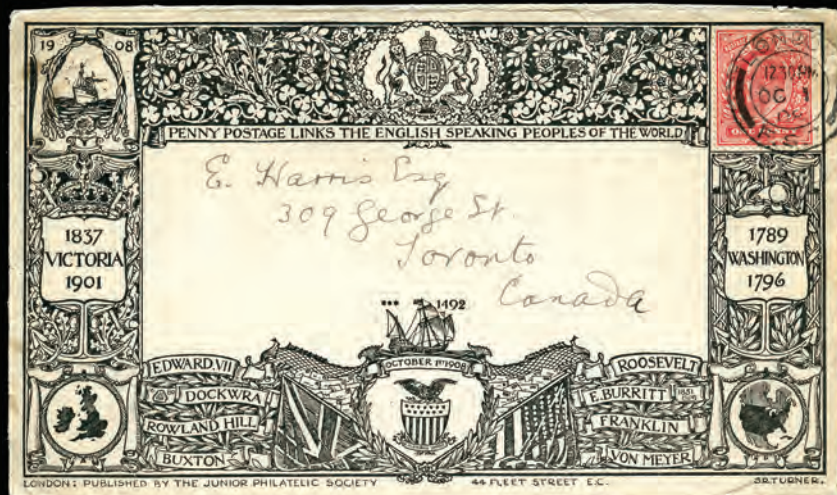 19 08
PENNY POSTAGE LINKS THE ENGLISH SPEAKING PEOPLES OF THE WORLD
ONE PENNY
12 30 PM
OC 1
08
E. Harris Esq
309 George St.
Toronto
Canada
1837
VICTORIA
1901
1789
WASHINGTON
1796
1492
OCTOBER 1ST 1908
EDWARD.VII
DOCKWRA
ROWLAND HILL
BUXTON
ROOSEVELT
E.BURRITT 1851
FRANKLIN
VON MEYER
LONDON: PUBLISHED BY THE JUNIOR PHILATELIC SOCIETY 44 FLEET STREET E.C. S.R.TURNER.